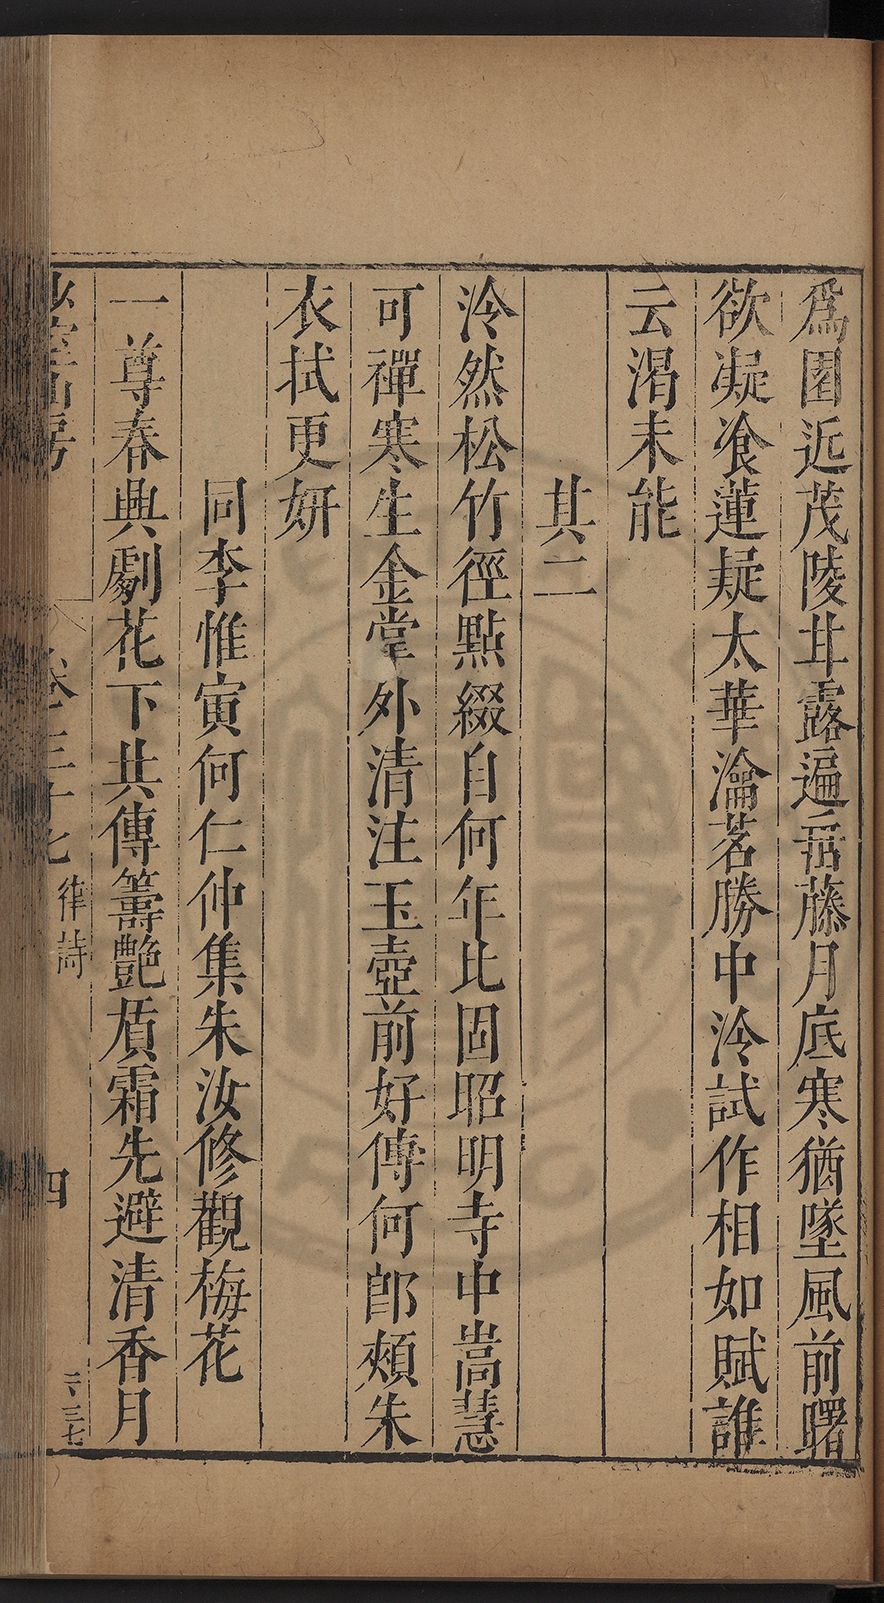 爲園近茂陵甘露遍垂藤月底寒猶墜風前曙
欲凝飡蓮疑太華瀹茗勝中泠試作相如賦誰
云渴未能
其二
泠然松竹徑點綴自何年比固昭明寺中嵩慧
可禪寒生金掌外清注玉壺前好傳何郎頰朱
衣拭更妍
同李惟寅何仁仲集朱汝修觀梅花
一尊春興劇花下共傳籌艷質霜先避清香月
山房
卷三十七
律詩
四